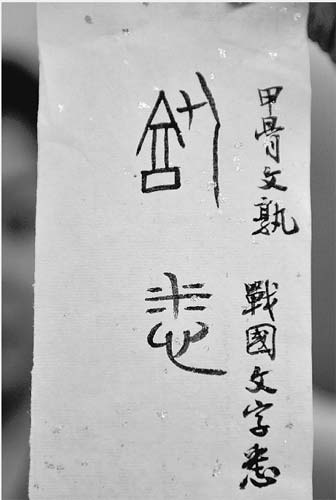 甲骨文孰
戰國文字悉